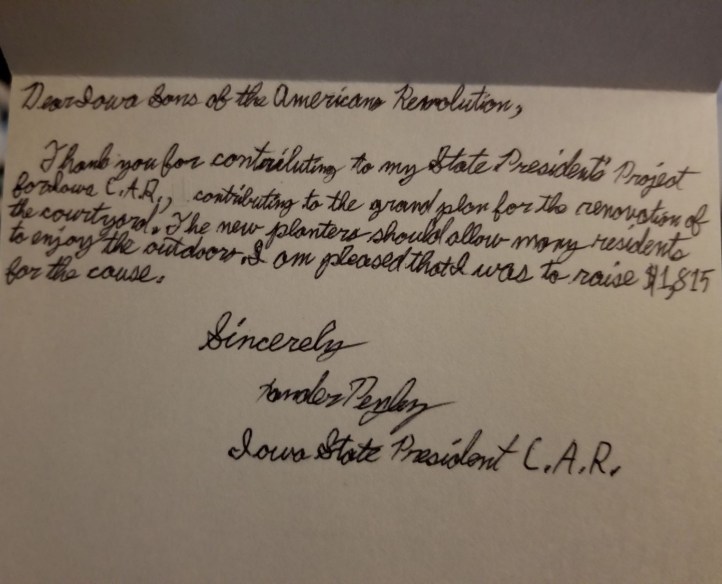 Dear Iowa Sons of the American Revolution,
Thank you for contributing to my State President's Project
for Iowa C.A.R., contributing to the grand plan for the renovation of
the courtyard. The new planters should allow many residents
to enjoy the outdoors. I am pleased that I was to raise $1,815
for the cause.
Sincerely
Iowa State President C.A.R.